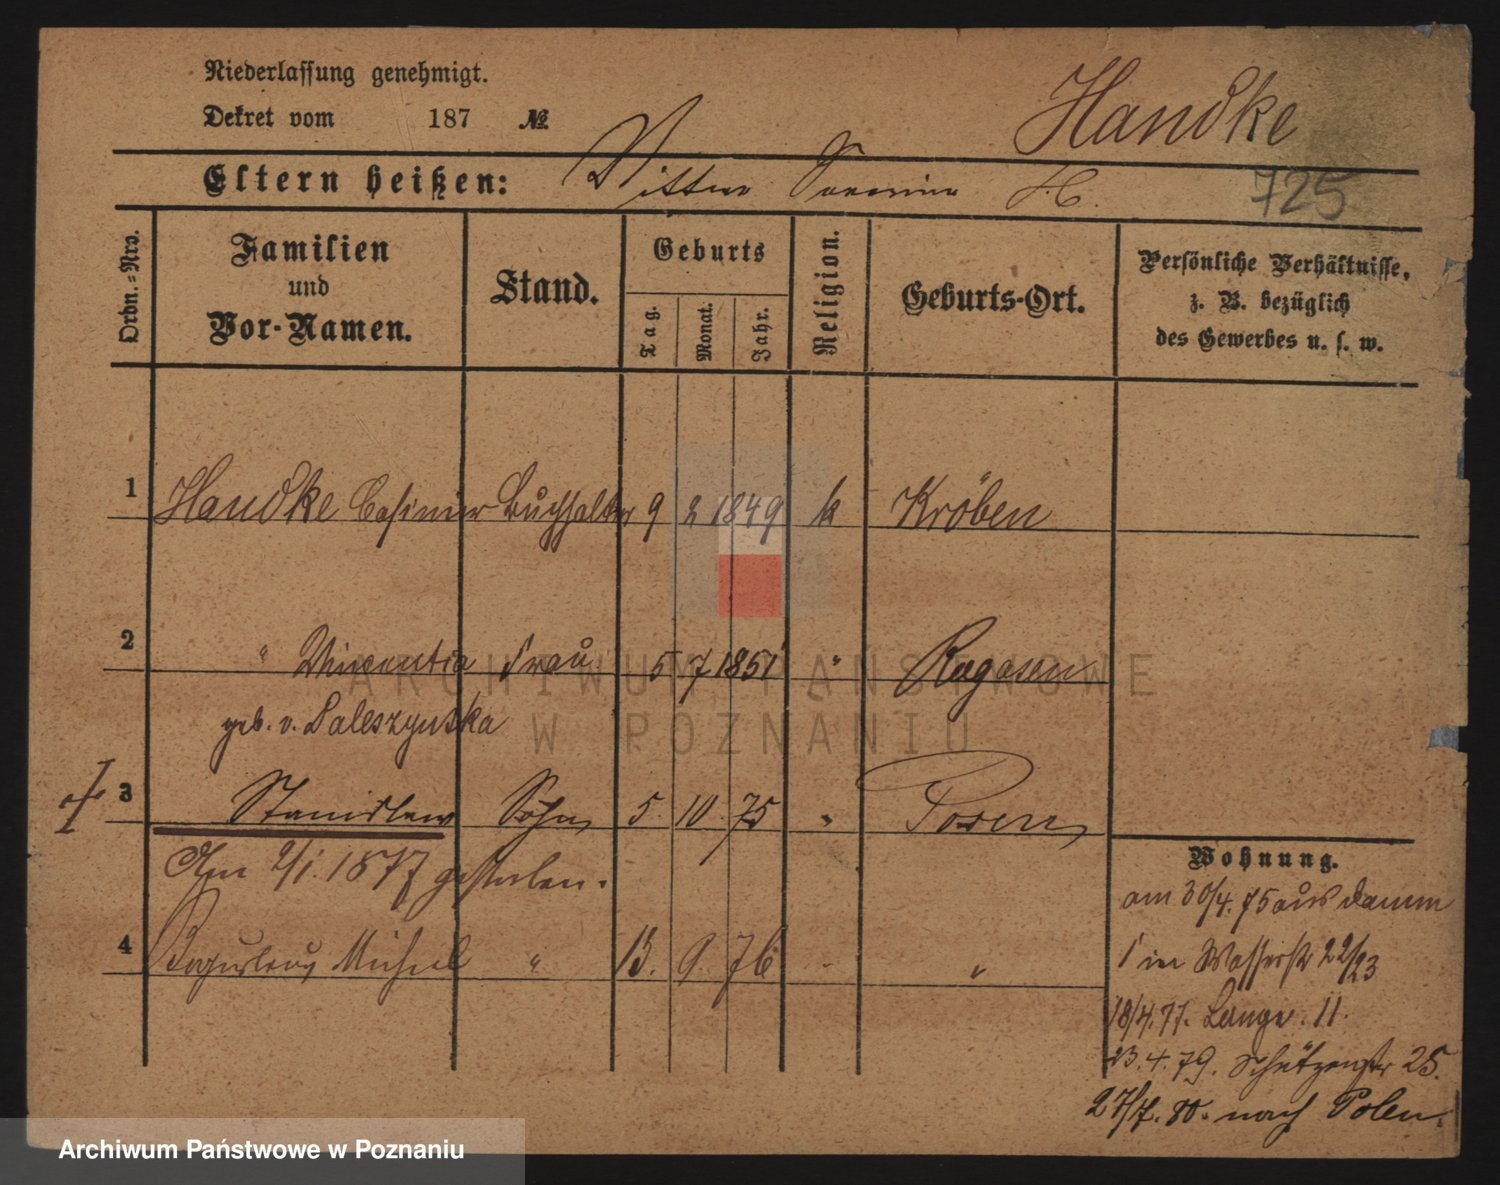 Niederlassung genehmigt.
Dekret vom 187 №
Handke
Eltern heißen: H.
725
Ordn.-Nro.
Familien
und
Vor-Namen.
Stand.
Geburts
Tag.
Monat.
Jahr.
Religion.
Geburts-Ort.
Persönliche Verhältnisse,
z. B. bezüglich
des Gewerbes u. s. w.
1 Handke Casimir Buchhalter 9 2 1849 k Kröben
2 " Vincentia Frau 5 7 1851 " Rogasen
geb. v. Paleszynska
3 Stanislaw Sohn 5. 10. 75 " Posen
Am 2/1. 1877 gestorben.
4 Boguslaus Michael " 13. 9. 76 - "
Wohnung.
am 30/4. 75 aus Damm
1 in Wasserstr 22/23
18/4. 77. Lange. 11.
23. 4. 79. Schützenstr 25.
27/7. 80. nach Polen.
ARCHIWUM PAŃSTWOWE
W POZNANIU
Archiwum Państwowe w Poznaniu